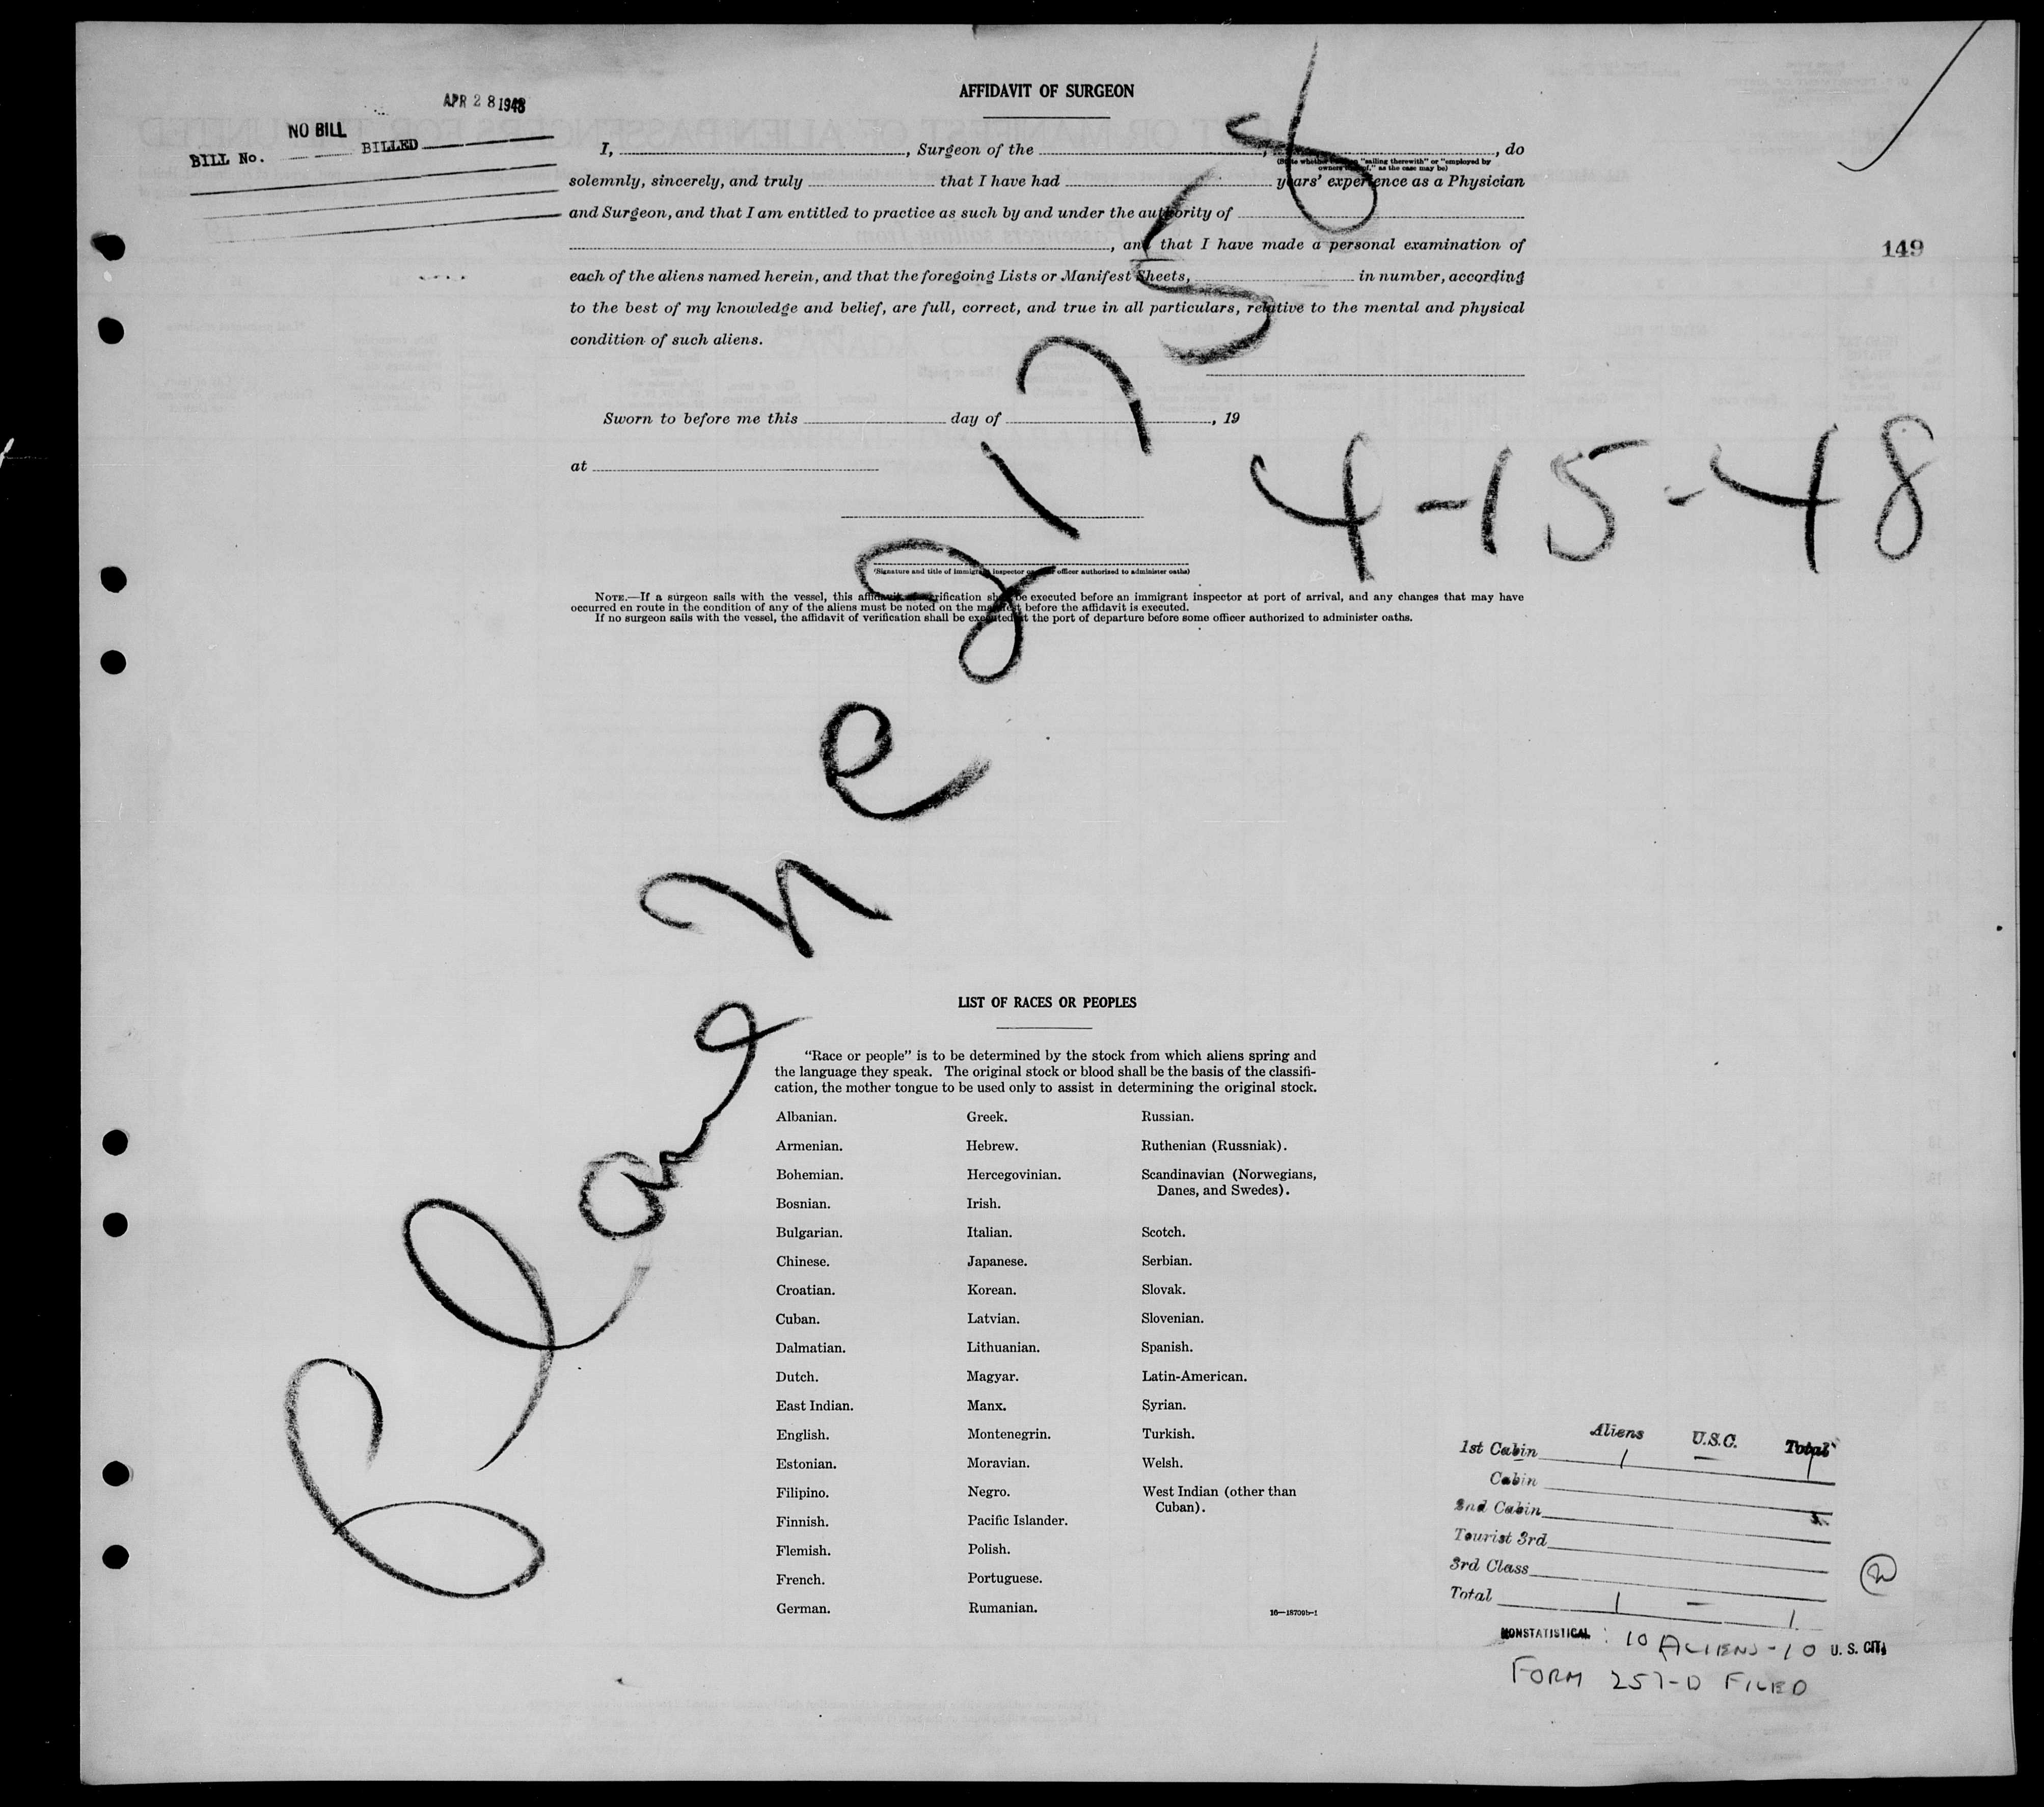 APR 28 1948
NO BILL
BILL No. BILLED
149
AFFIDAVIT OF SURGEON
I, , Surgeon of the , , do
(State whether "sailing therewith" or "employed by
owners thereof," as the case may be)
solemnly, sincerely, and truly that I have had years' experience as a Physician
and Surgeon, and that I am entitled to practice as such by and under the authority of
, and that I have made a personal examination of
each of the aliens named herein, and that the foregoing Lists or Manifest Sheets, in number, according
to the best of my knowledge and belief, are full, correct, and true in all particulars, relative to the mental and physical
condition of such aliens.
Sworn to before me this day of , 19
at
4-15-48
(Signature and title of immigrant inspector or other officer authorized to administer oaths)
NOTE.—If a surgeon sails with the vessel, this affidavit verification shall be executed before an immigrant inspector at port of arrival, and any changes that may have
occurred en route in the condition of any of the aliens must be noted on the manifest before the affidavit is executed.
If no surgeon sails with the vessel, the affidavit of verification shall be executed at the port of departure before some officer authorized to administer oaths.
Plane
LIST OF RACES OR PEOPLES
"Race or people" is to be determined by the stock from which aliens spring and
the language they speak. The original stock or blood shall be the basis of the classifi-
cation, the mother tongue to be used only to assist in determining the original stock.
Albanian. Greek. Russian.
Armenian. Hebrew. Ruthenian (Russniak).
Bohemian. Hercegovinian. Scandinavian (Norwegians,
Danes, and Swedes).
Bosnian. Irish.
Bulgarian. Italian. Scotch.
Chinese. Japanese. Serbian.
Croatian. Korean. Slovak.
Cuban. Latvian. Slovenian.
Dalmatian. Lithuanian. Spanish.
Dutch. Magyar. Latin-American.
East Indian. Manx. Syrian.
English. Montenegrin. Turkish.
Estonian. Moravian. Welsh.
Filipino. Negro. West Indian (other than
Cuban).
Finnish. Pacific Islander.
Flemish. Polish.
French. Portuguese.
German. Rumanian.
16—18709b-1
Aliens U.S.C. Total
1st Cabin 1 — 1
Cabin
2nd Cabin
Tourist 3rd
3rd Class
Total 1 — 1
NONSTATISTICAL : 10 ALIENS - 10 U. S. CIT.
FORM 257-D FILED